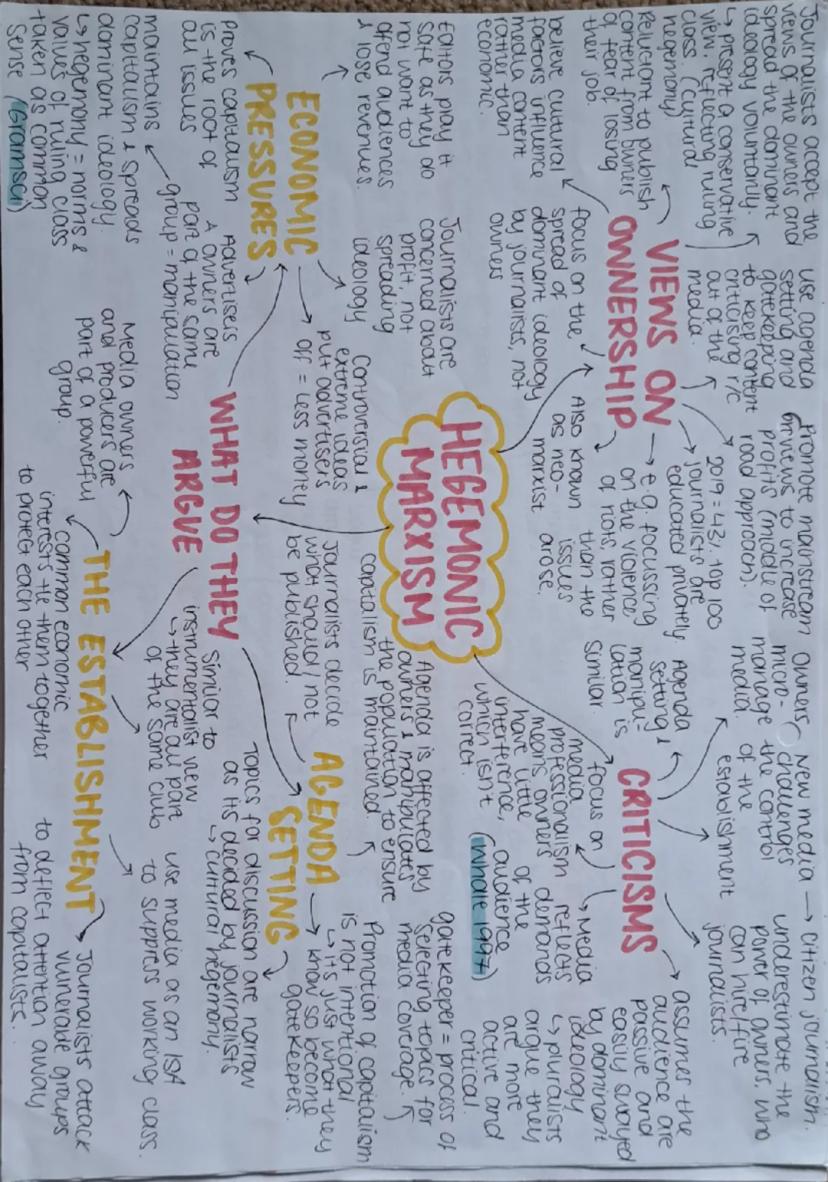 HEGEMONIC
MARXISM
VIEWS ON
OWNERSHIP
Journalists accept the
views of the owners and
spread the dominant
ideology voluntarily.
↳ present a conservative
view, reflecting ruling
class. (cultural
hegemony)
Reluctant to publish
content from owners
of fear of losing
their job.
believe cultural
factors influence
media content
rather than
economic.
focus on the
spread of
dominant ideology
by journalists, not
owners
use agenda
setting and
gatekeeping
to keep content
criticising r/c
out of the
media.
Also known
as neo-
marxist
Promote mainstream
views to increase
profits (middle of
road approach).
2019 = 43% top 100
journalists are
educated privately
e.g. focussing
on the violence
of riots rather
than the
issues
arose.
CRITICISMS
Owners
micro-
manage
media.
New media → citizen journalism.
challenges
the control
of the
establishment
Agenda
setting &
manipu-
lation is
similar.
focus on
media
professionalism
means owners
have little
interference,
which isn't
correct.
Media
reflects
demands
of the
audience
(Whale 1997)
underestimate the
power of owners who
can hire/fire
journalists.
assumes the
audience are
passive and
easily swayed
by dominant
ideology
↳ pluralists
argue they
are more
active and
critical.
WHAT DO THEY
ARGUE
ECONOMIC
PRESSURES
Editors play it
safe as they do
not want to
offend audiences
& lose revenues.
Journalists are
concerned about
profit, not
spreading
ideology
Controversial &
extreme ideas
put advertisers
off = less money
Advertisers
& owners are
part of the same
group = manipulation
proves capitalism
is the root of
all issues
maintains
capitalism & spreads
dominant ideology.
↳ hegemony = norms &
values of ruling class
taken as common
sense (Gramsci)
AGENDA
SETTING
Journalists decide
what should/not
be published.
Agenda is affected by
owners & manipulates
the population to ensure
capitalism is maintained.
gatekeeper = process of
selecting topics for
media coverage.
Promotion of capitalism
is not intentional
↳ it's just what they
know so become
gatekeepers.
Topics for discussion are narrow
as its decided by journalists
↳ cultural hegemony.
THE ESTABLISHMENT
Media owners
and producers are
part of a powerful
group.
common economic
interests tie them together
to protect each other
similar to
instrumentalist view
↳ they are all part
of the same club
use media as an ISA
to suppress working class.
Journalists attack
vulnerable groups
to deflect attention away
from capitalists.